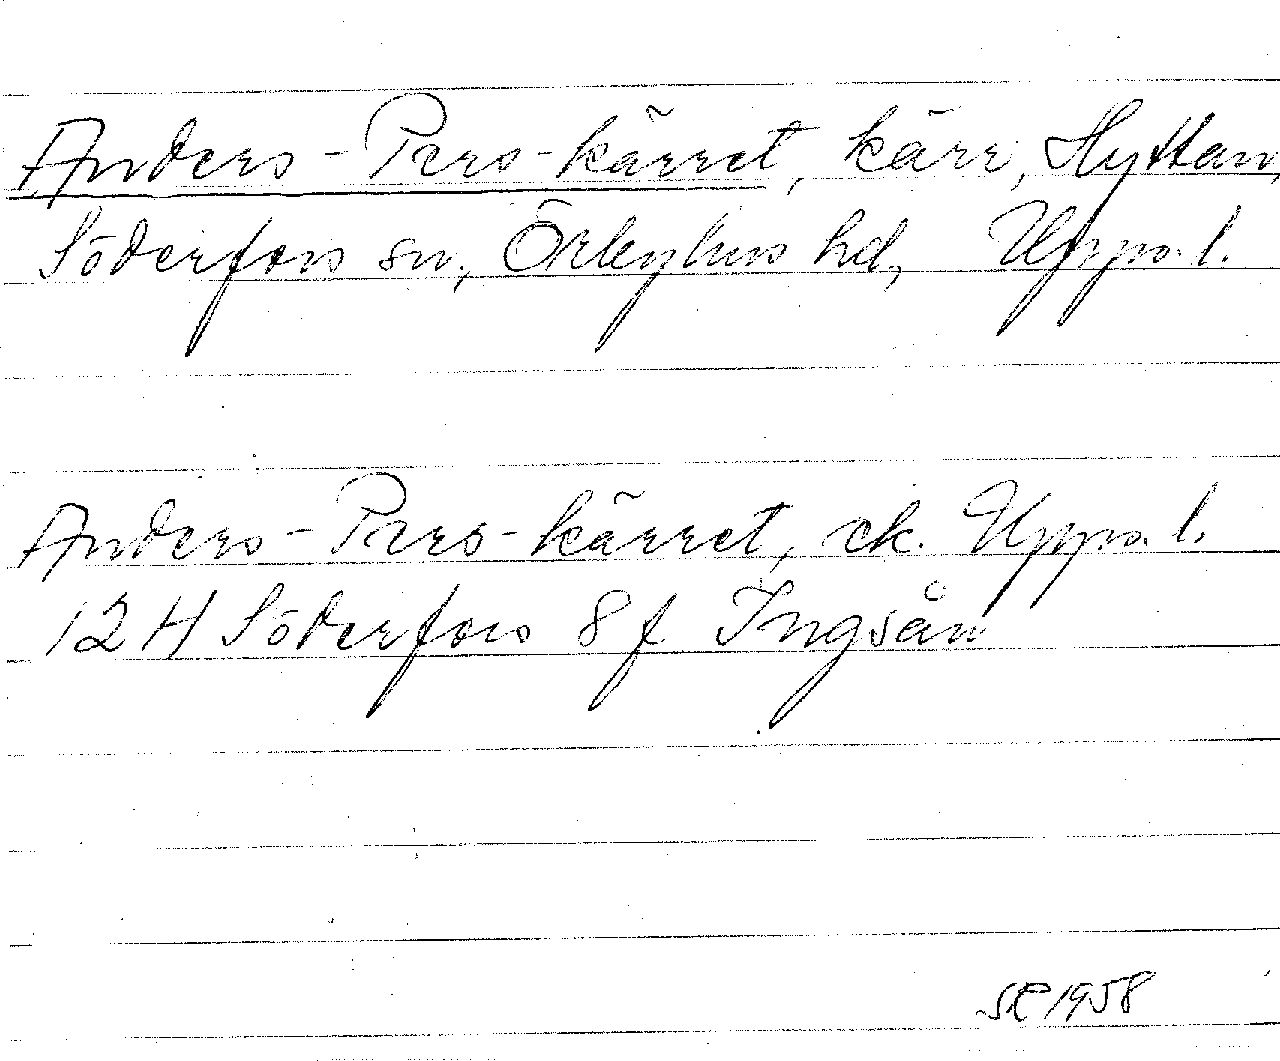 Anders-Pers-kärret, kärr, Hyttan,
Söderfors sn, Örbyhus hd, Upps. l.
Anders-Pers-kärret, ek. Upps. l.
12 H Söderfors 8 f Ingsån
SE 1958